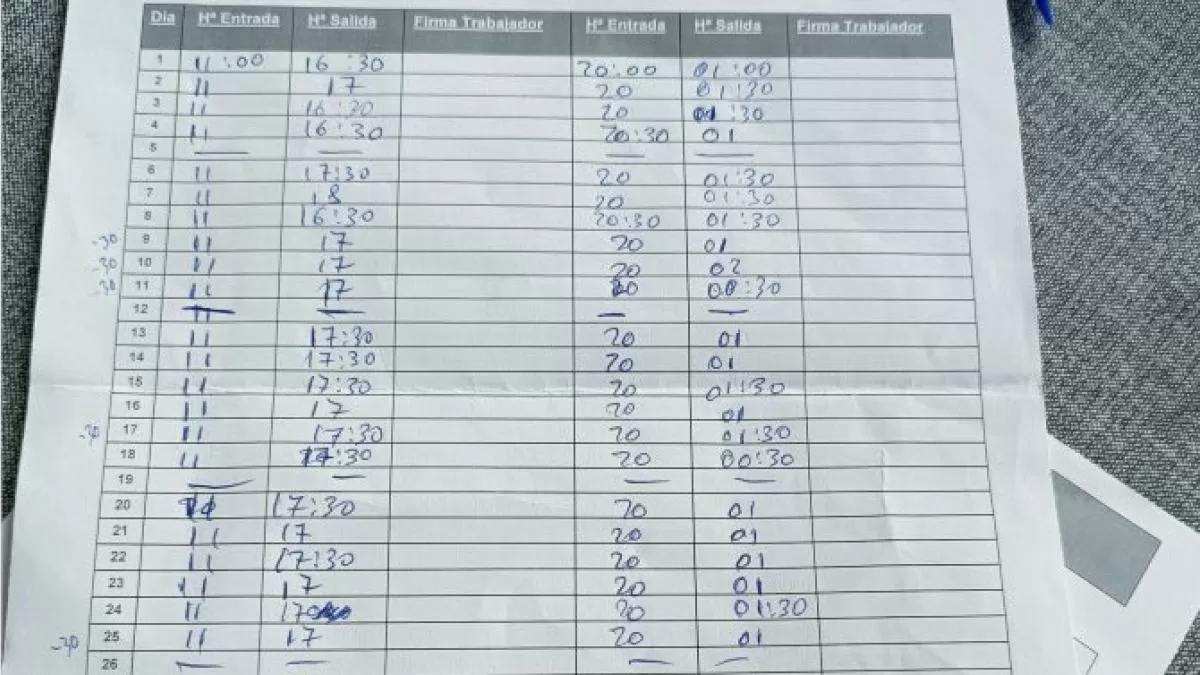 Día Hª Entrada Hª Salida Firma Trabajador Hª Entrada Hª Salida Firma Trabajador
1 11:00 16:30 20:00 01:00
2 11 17 20 01:30
3 11 16:30 20 01:30
4 11 16:30 20:30 01
5 — — — —
6 11 17:30 20 01:30
7 11 18 20 01:30
8 11 16:30 20:30 01:30
-30 9 11 17 20 01
-30 10 11 17 20 02
-30 11 11 17 20 00:30
12 — — — —
13 11 17:30 20 01
14 11 17:30 20 01
15 11 17:30 20 01:30
16 11 17 20 01
-30 17 11 17:30 20 01:30
18 11 17:30 20 00:30
19 — — — —
20 11 17:30 20 01
21 11 17 20 01
22 11 17:30 20 01
23 11 17 20 01
24 11 17 20 01:30
-30 25 11 17 20 01
26 — — — —